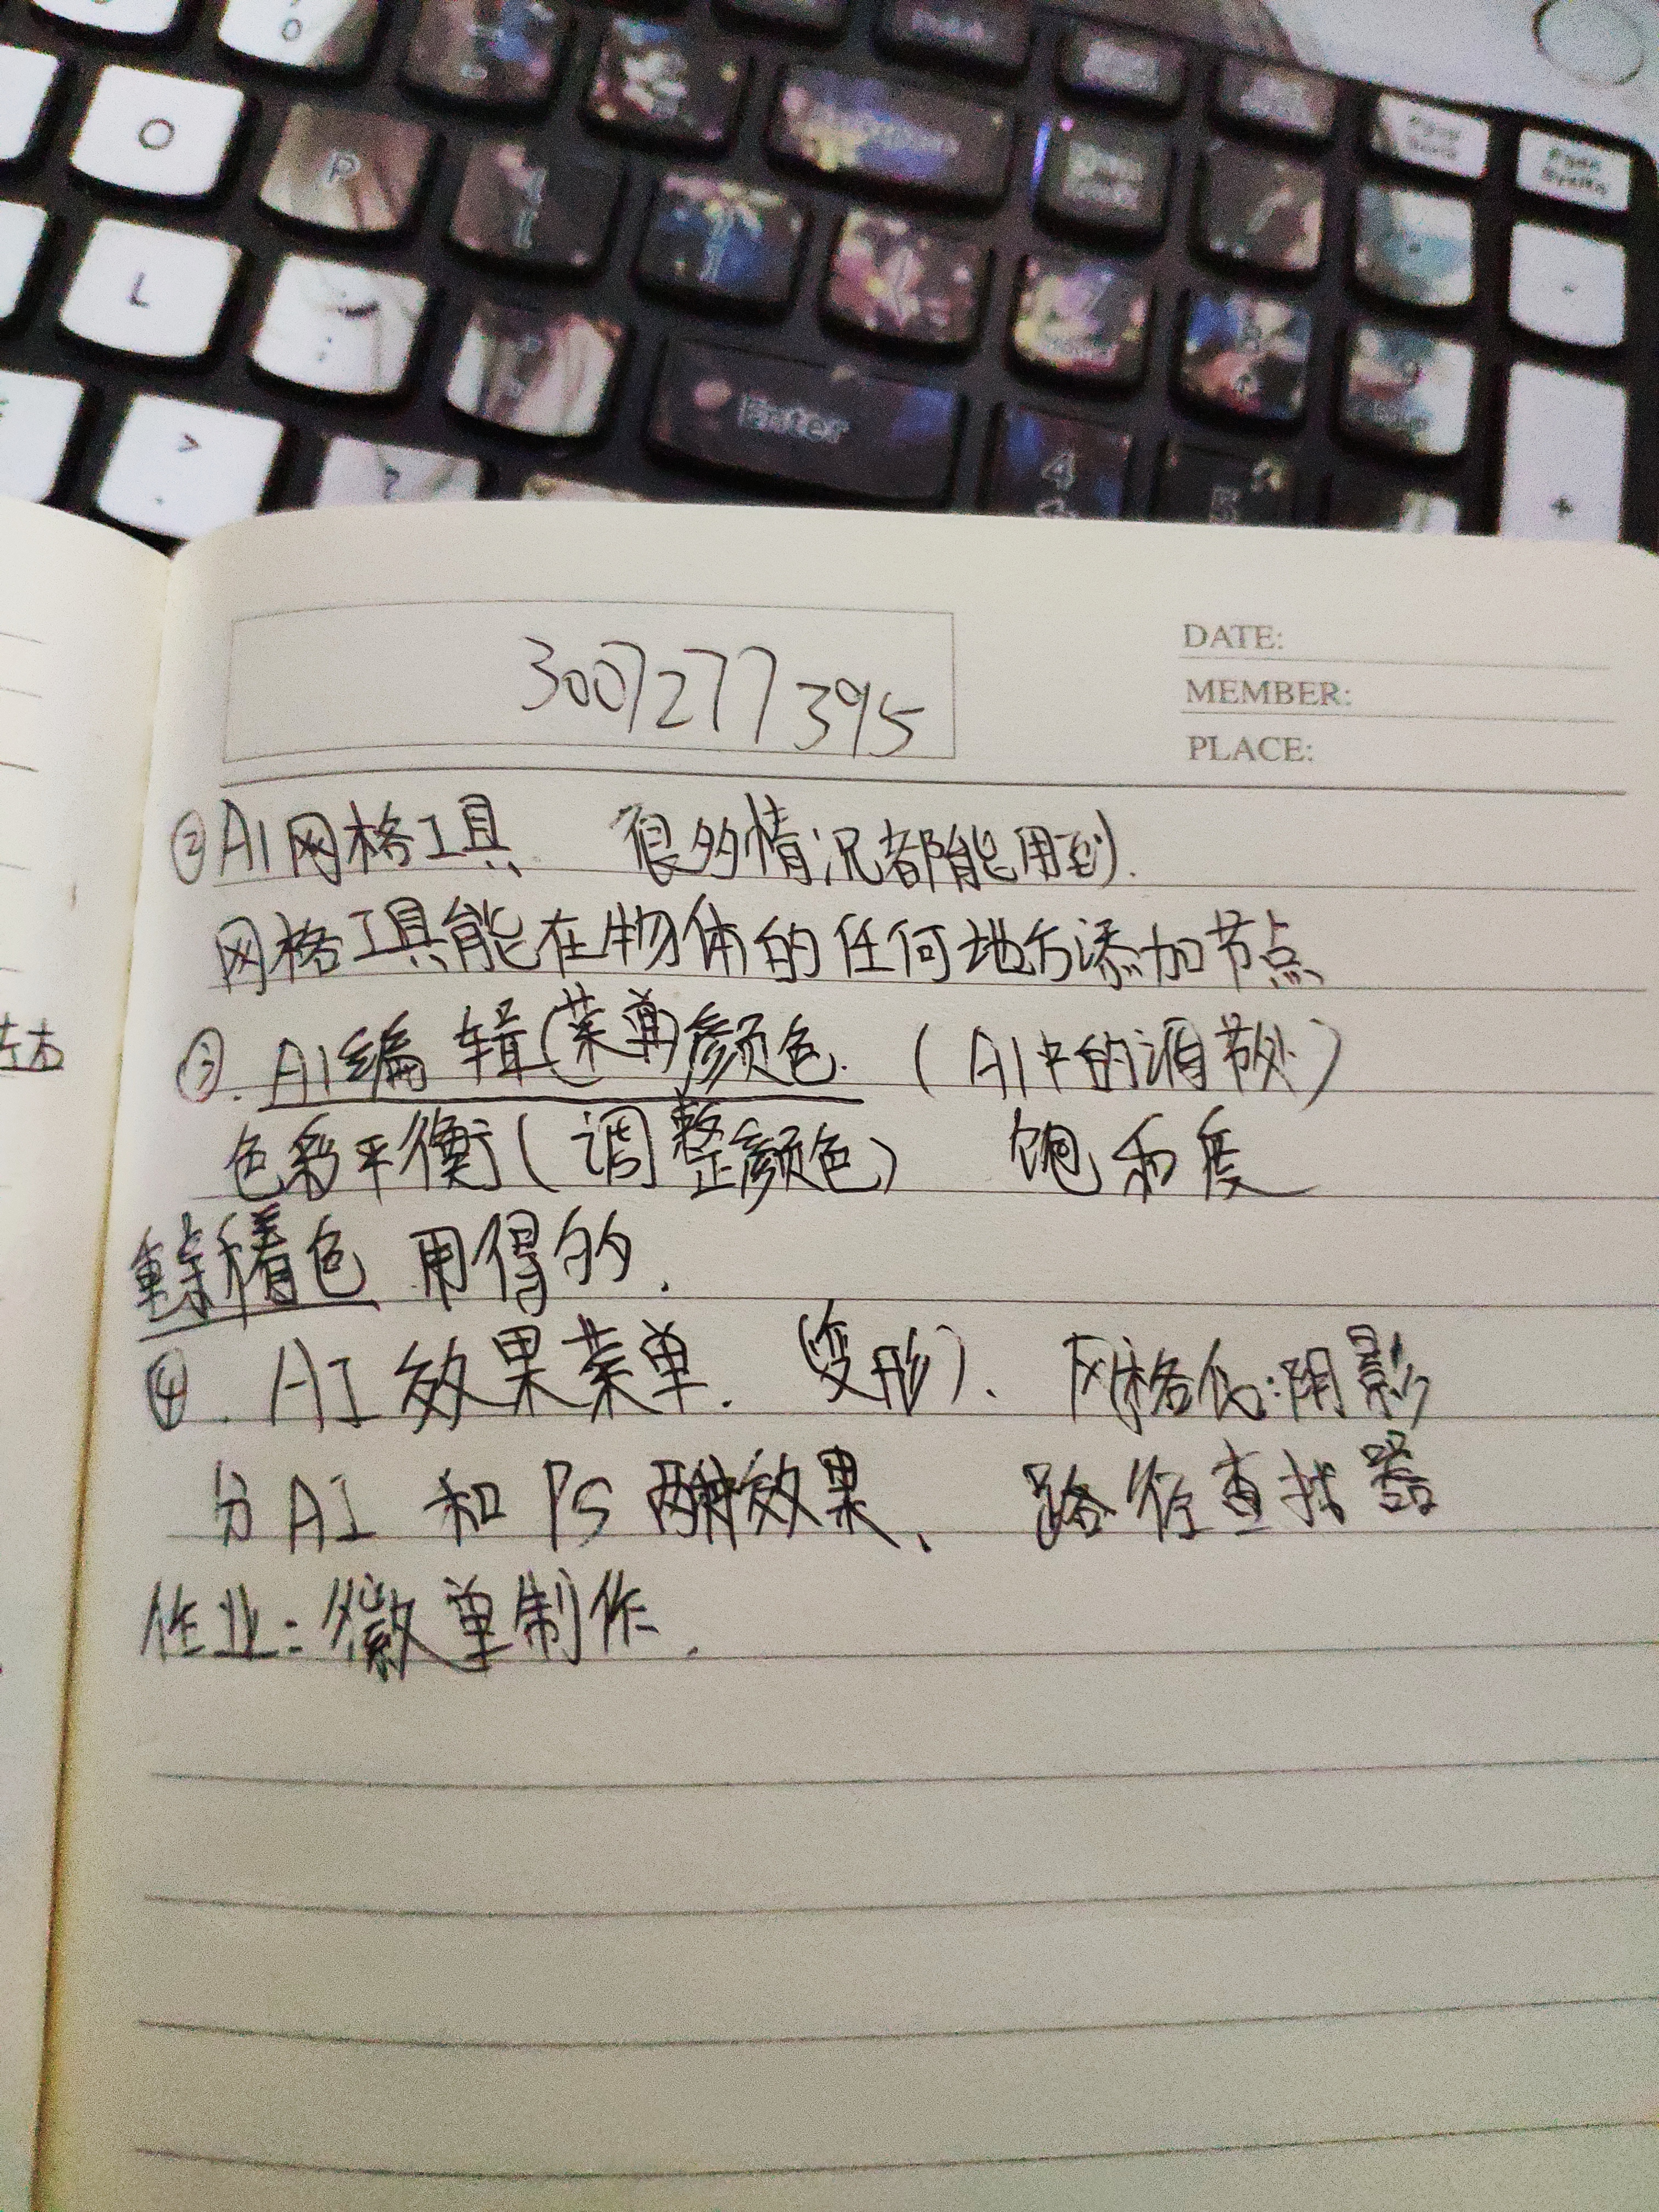 O
P
L
Enter
4
5
+
3007277395
DATE:
MEMBER:
PLACE:
②AI网格工具 很多情况都能用到.
网格工具能在物体的任何地方添加节点
③.AI编辑(菜单)颜色.(AI中的调节处)
色彩平衡(调整颜色) 饱和度
重新着色 用得多.
④.AI效果菜单.(变形).网格化:阴影
分AI和PS两种效果、路径查找器
作业:徽章制作.
左右